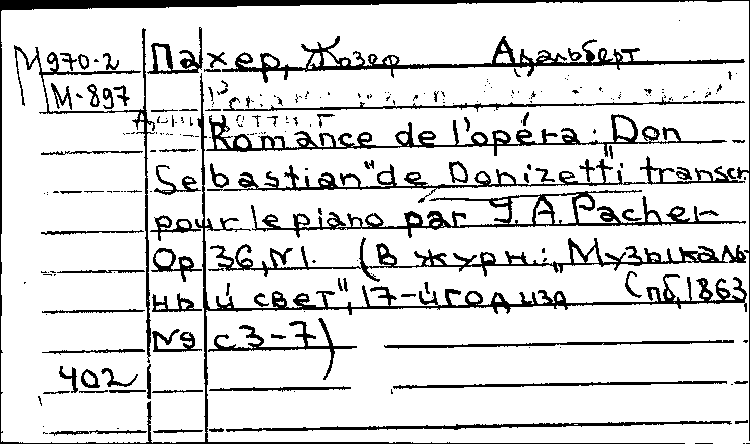 М970-2 Пахер, Жозеф Адальберт
М-897
Romance de l'opéra: Don
Sebastian" de Donizetti" transcr.
pour le piano par J. A. Pacher
Op 36, N1. (В журн.: „Музыкаль-
ный свет", 17-й год изд Спб, 1863
N9 с 3-7)
402